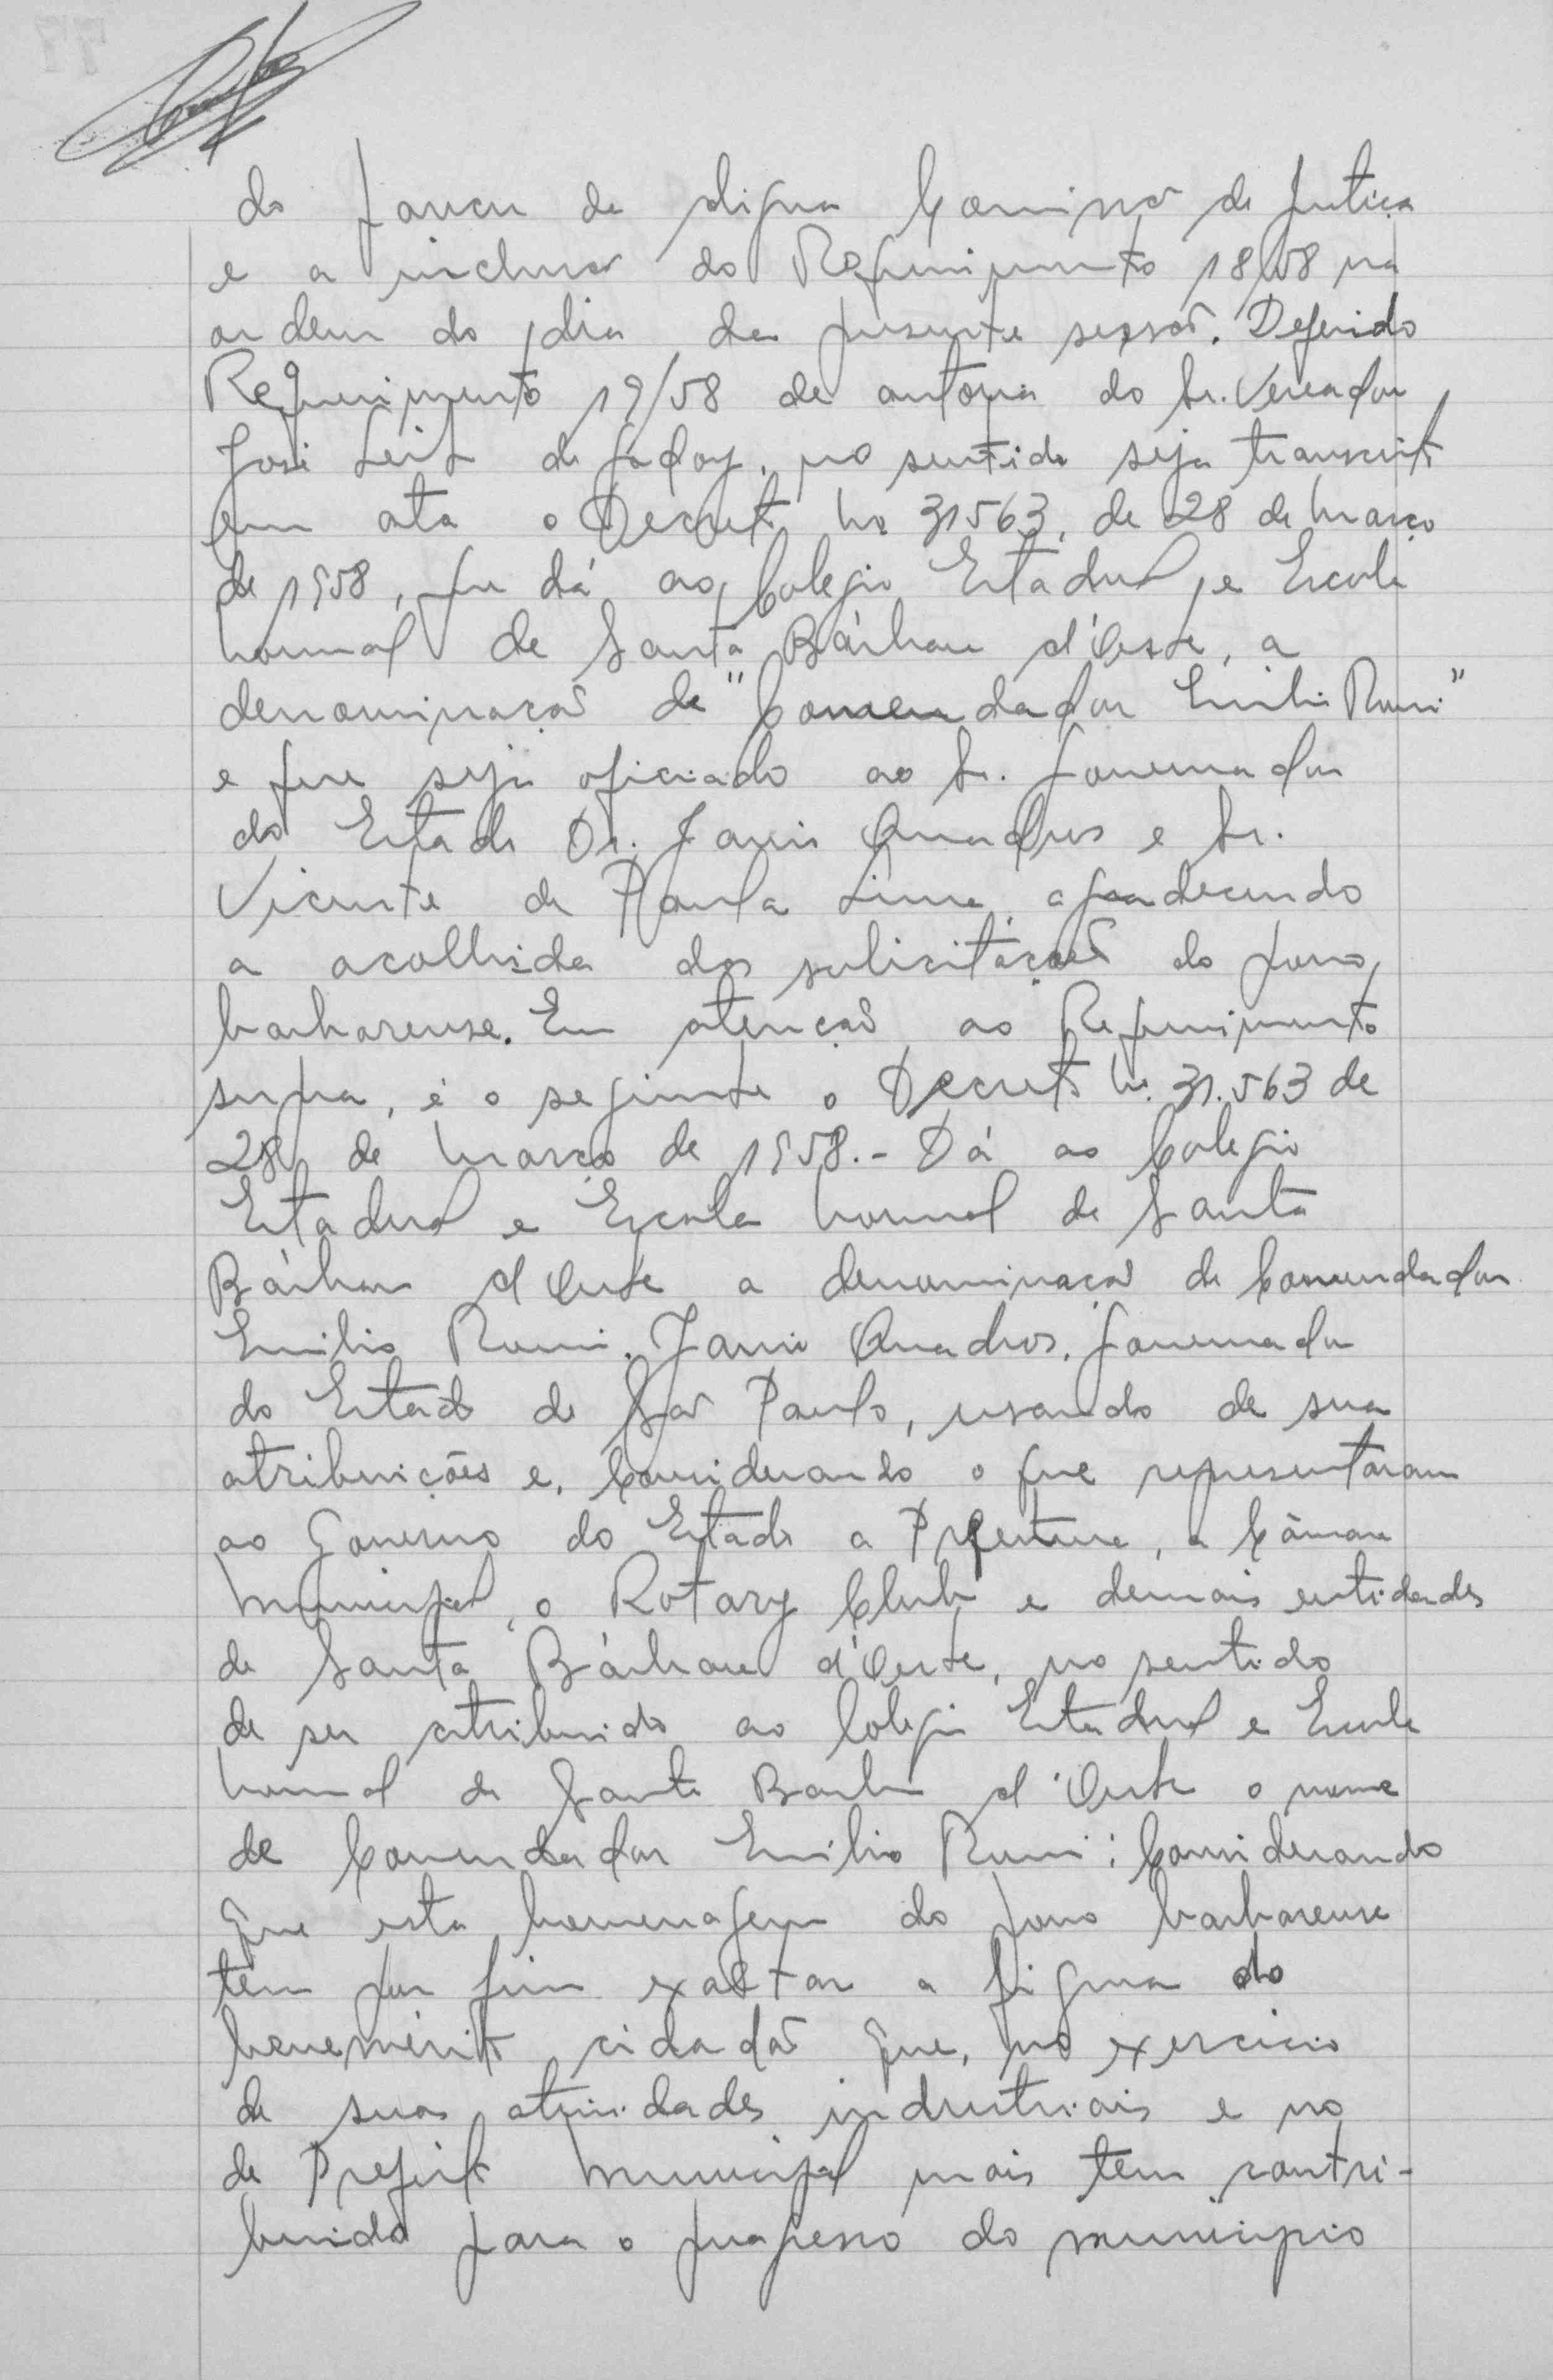 do parecer da digna Comissão de Justiça
e a inclusão do Requerimento 18/58 na
ordem do dia da presente sessão. Deferido
Requerimento 19/58 de autoria do Sr. Vereador
José Leite de Godoy, no sentido seja transcrito
em ata o Decreto No 31563, de 28 de Março
de 1958, que dá ao Colegio Estadual e Escola
Normal de Santa Bárbara d'Oeste, a
denominação de "Comendador Emilio Romi"
e que seja oficiado ao Sr. Governador
do Estado Dr. Janio Quadros e Sr.
Vicente de Paula Lima, agradecendo
a acolhida das solicitações do povo
barbarense. Em atenção ao Requerimento
supra, é o seguinte o Decreto No. 31.563 de
28 de Março de 1958.- Dá ao Colegio
Estadual e Escola Normal de Santa
Bárbara d'Oeste a denominação de Comendador
Emilio Romi. Janio Quadros, Governador
do Estado de São Paulo, usando de sua
atribuições e, Considerando o que representaram
ao Governo do Estado a Prefeitura, a Câmara
Municipal, o Rotary Club e demais entidades
de Santa Bárbara d'Oeste, no sentido
de ser atribuido ao Colegio Estadual e Escola
Normal de Santa Barbara d'Oeste o nome
de Comendador Emilio Romi; Considerando
Que esta homenagem do povo barbarense
tem por fim exaltar a figura do
benemérito cidadão que, no exercicio
de suas atividades industriais e no
de Prefeito Municipal mais tem contri-
buido para o progresso do municipio